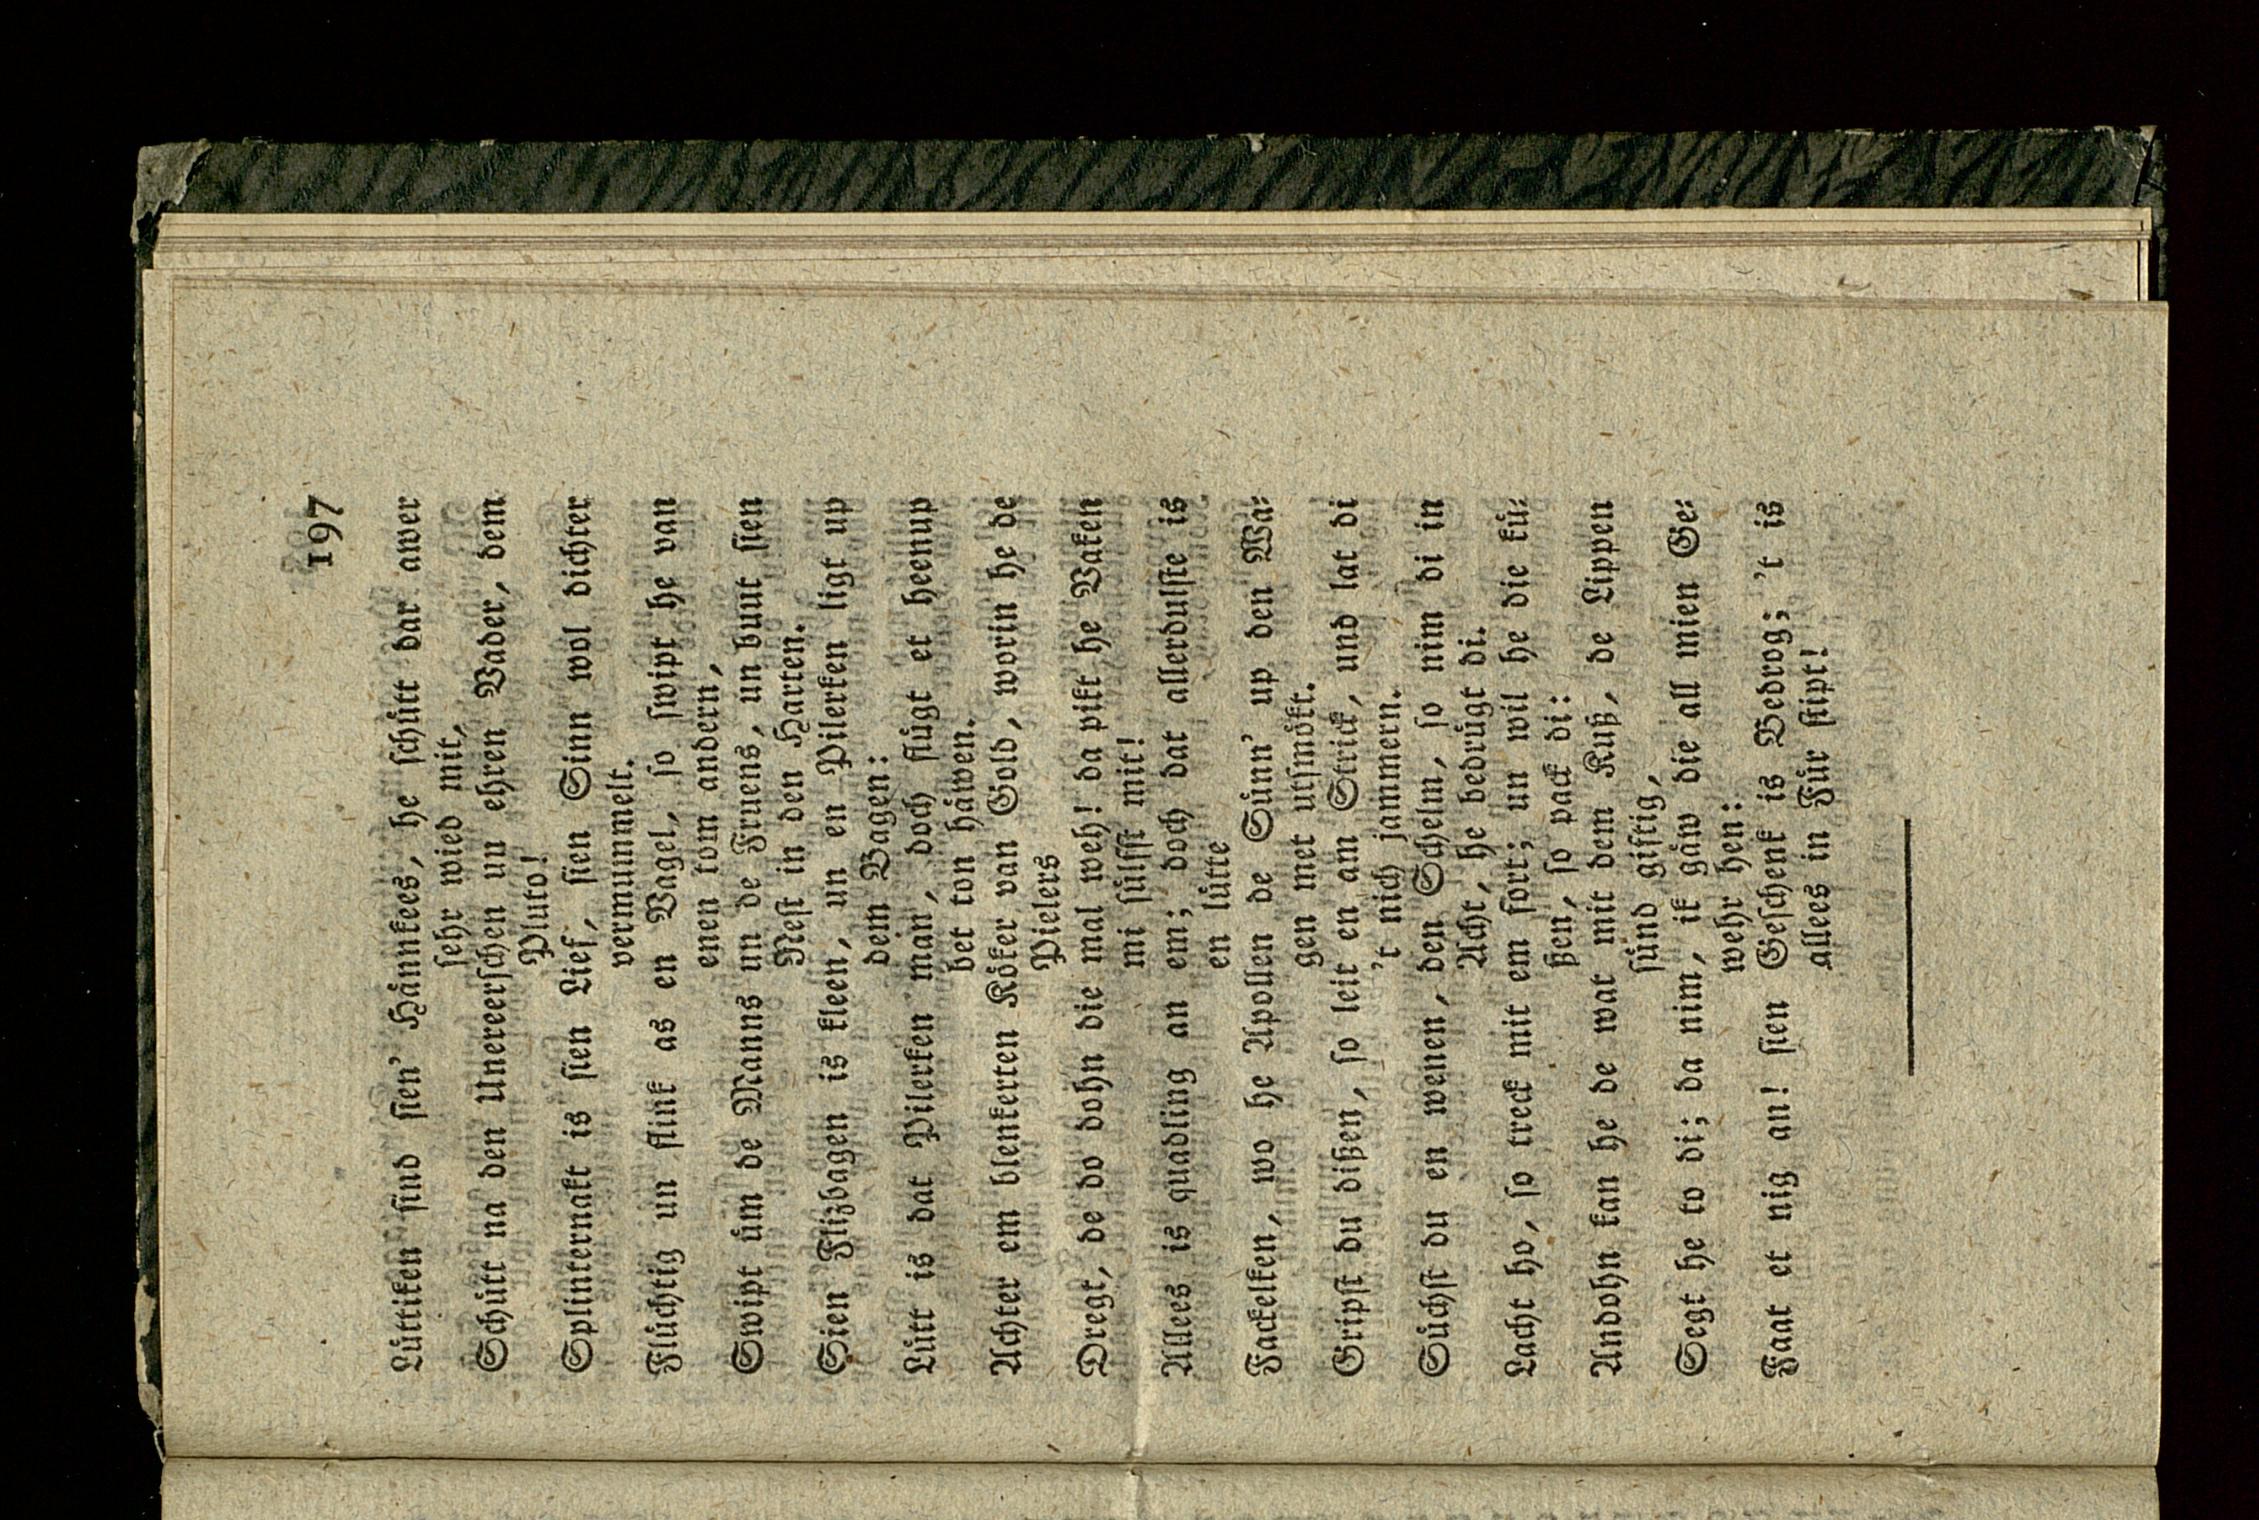 197
Lüttiken sind sien' Hännkees, he schütt dar awer
sehr wied mit,
Schütt na den Unereerschen un ehren Vader, dem
Pluto!
Splinternakt is sien Lief, sien Sinn wol dichter
vermummelt.
Flüchtig un flink as en Vagel, so swipt he van
enen tom andern,
Swipt üm de Manns un de Fruens, un buut sien
Nest in den Harten.
Sien Flizbagen is kleen, un en Pilerken ligt up
dem Bagen:
Lütt is dat Pilerken man, doch flügt et heenup
bet ton häwen.
Achter em blenkerten Köker van Gold, worin he de
Pielers
Dregt, de do dohn die mal weh! da pikt he Vaken
mi sülfst mit!
Allees is quadling an em; doch dat allerdulste is
en lütte
Fackelken, wo he Apollen de Sünn' up den Wa-
gen met utsmökt.
Gripst du dißen, so leit en am Strick, und lat di
't nich jammern.
Süchst du en wenen, den Schelm, so nim di in
Acht, he bedrügt di.
Lacht ho, so treck mit em fort; un wil he die kü-
ßen, so pack di:
Andohn kan he de wat mit dem Kuß, de Lippen
sünd giftig,
Segt he to di; da nim, ik gäw die all mien Ge-
wehr hen:
Faat et nig an! sien Geschenk is Bedrog; 't is
allees in Für stipt!